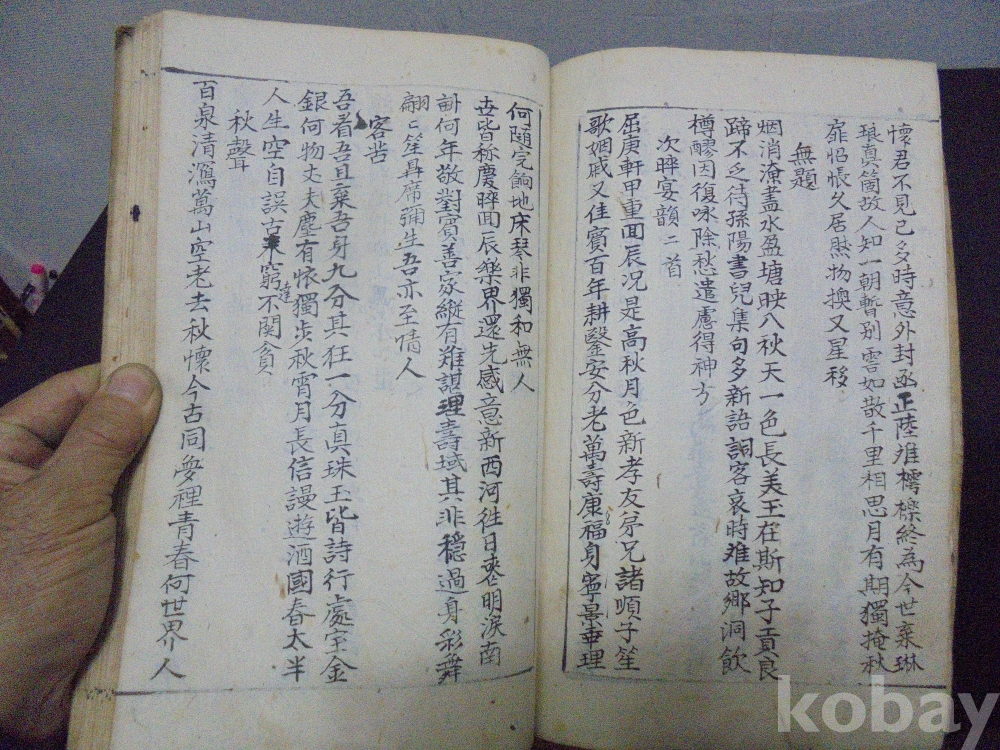 懷君不見已多時意外封函正陸難樗櫟終為今世棄琳
琅真箇故人知一朝暫別雲如散千里相思月有期獨掩秋
扉怊悵久居然物換又星移
無題
烟消潦盡水盈塘映入秋天一色長美玉在斯知子貢良
蹄不乏待孫陽書兒集句多新語詞客哀時难故鄉洞飲
樽醪因復咏除愁遣慮得神方
次晬宴韻二首
屈庚軒甲重回辰况是高秋月色新孝友弟兄諸順子笙
歌姻戚又佳賓百年耕鑿安分老萬壽康福身寧景垂理
何隨完餉地床琴非獨和無人
世皆称慶晬回辰樂界還先感意新西河徃日喪明淚南
斗何年敬對賓善家縱有难諶理壽域其非穩過身彩舞
翩〻笙再席彌生吾亦至情人
客苦
吾看吾且棄吾身九分其狂一分真珠玉皆詩行處宝金
銀何物丈夫塵有懷獨步秋宵月長信謾遊酒國春太半
人生空自誤古來窮達不関貧
秋聲
百泉清瀉萬山空老去秋懷今古同夢裡青春何世界人
kobay